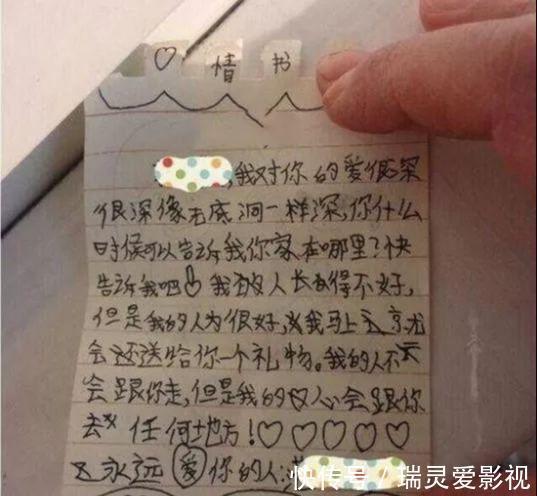 ♡情书
,我对你的爱很深
很深像无底洞一样深,你什么
时候可以告诉我你家在哪里?快
告诉我吧 我的人长得不好,
但是我的人为很好,我马上
会还送给你一个礼物。我的人不
会跟你走,但是我的心会跟你
去 任何地方!♡♡♡♡♡
永远爱你的人:
快传号/瑞灵爱影视